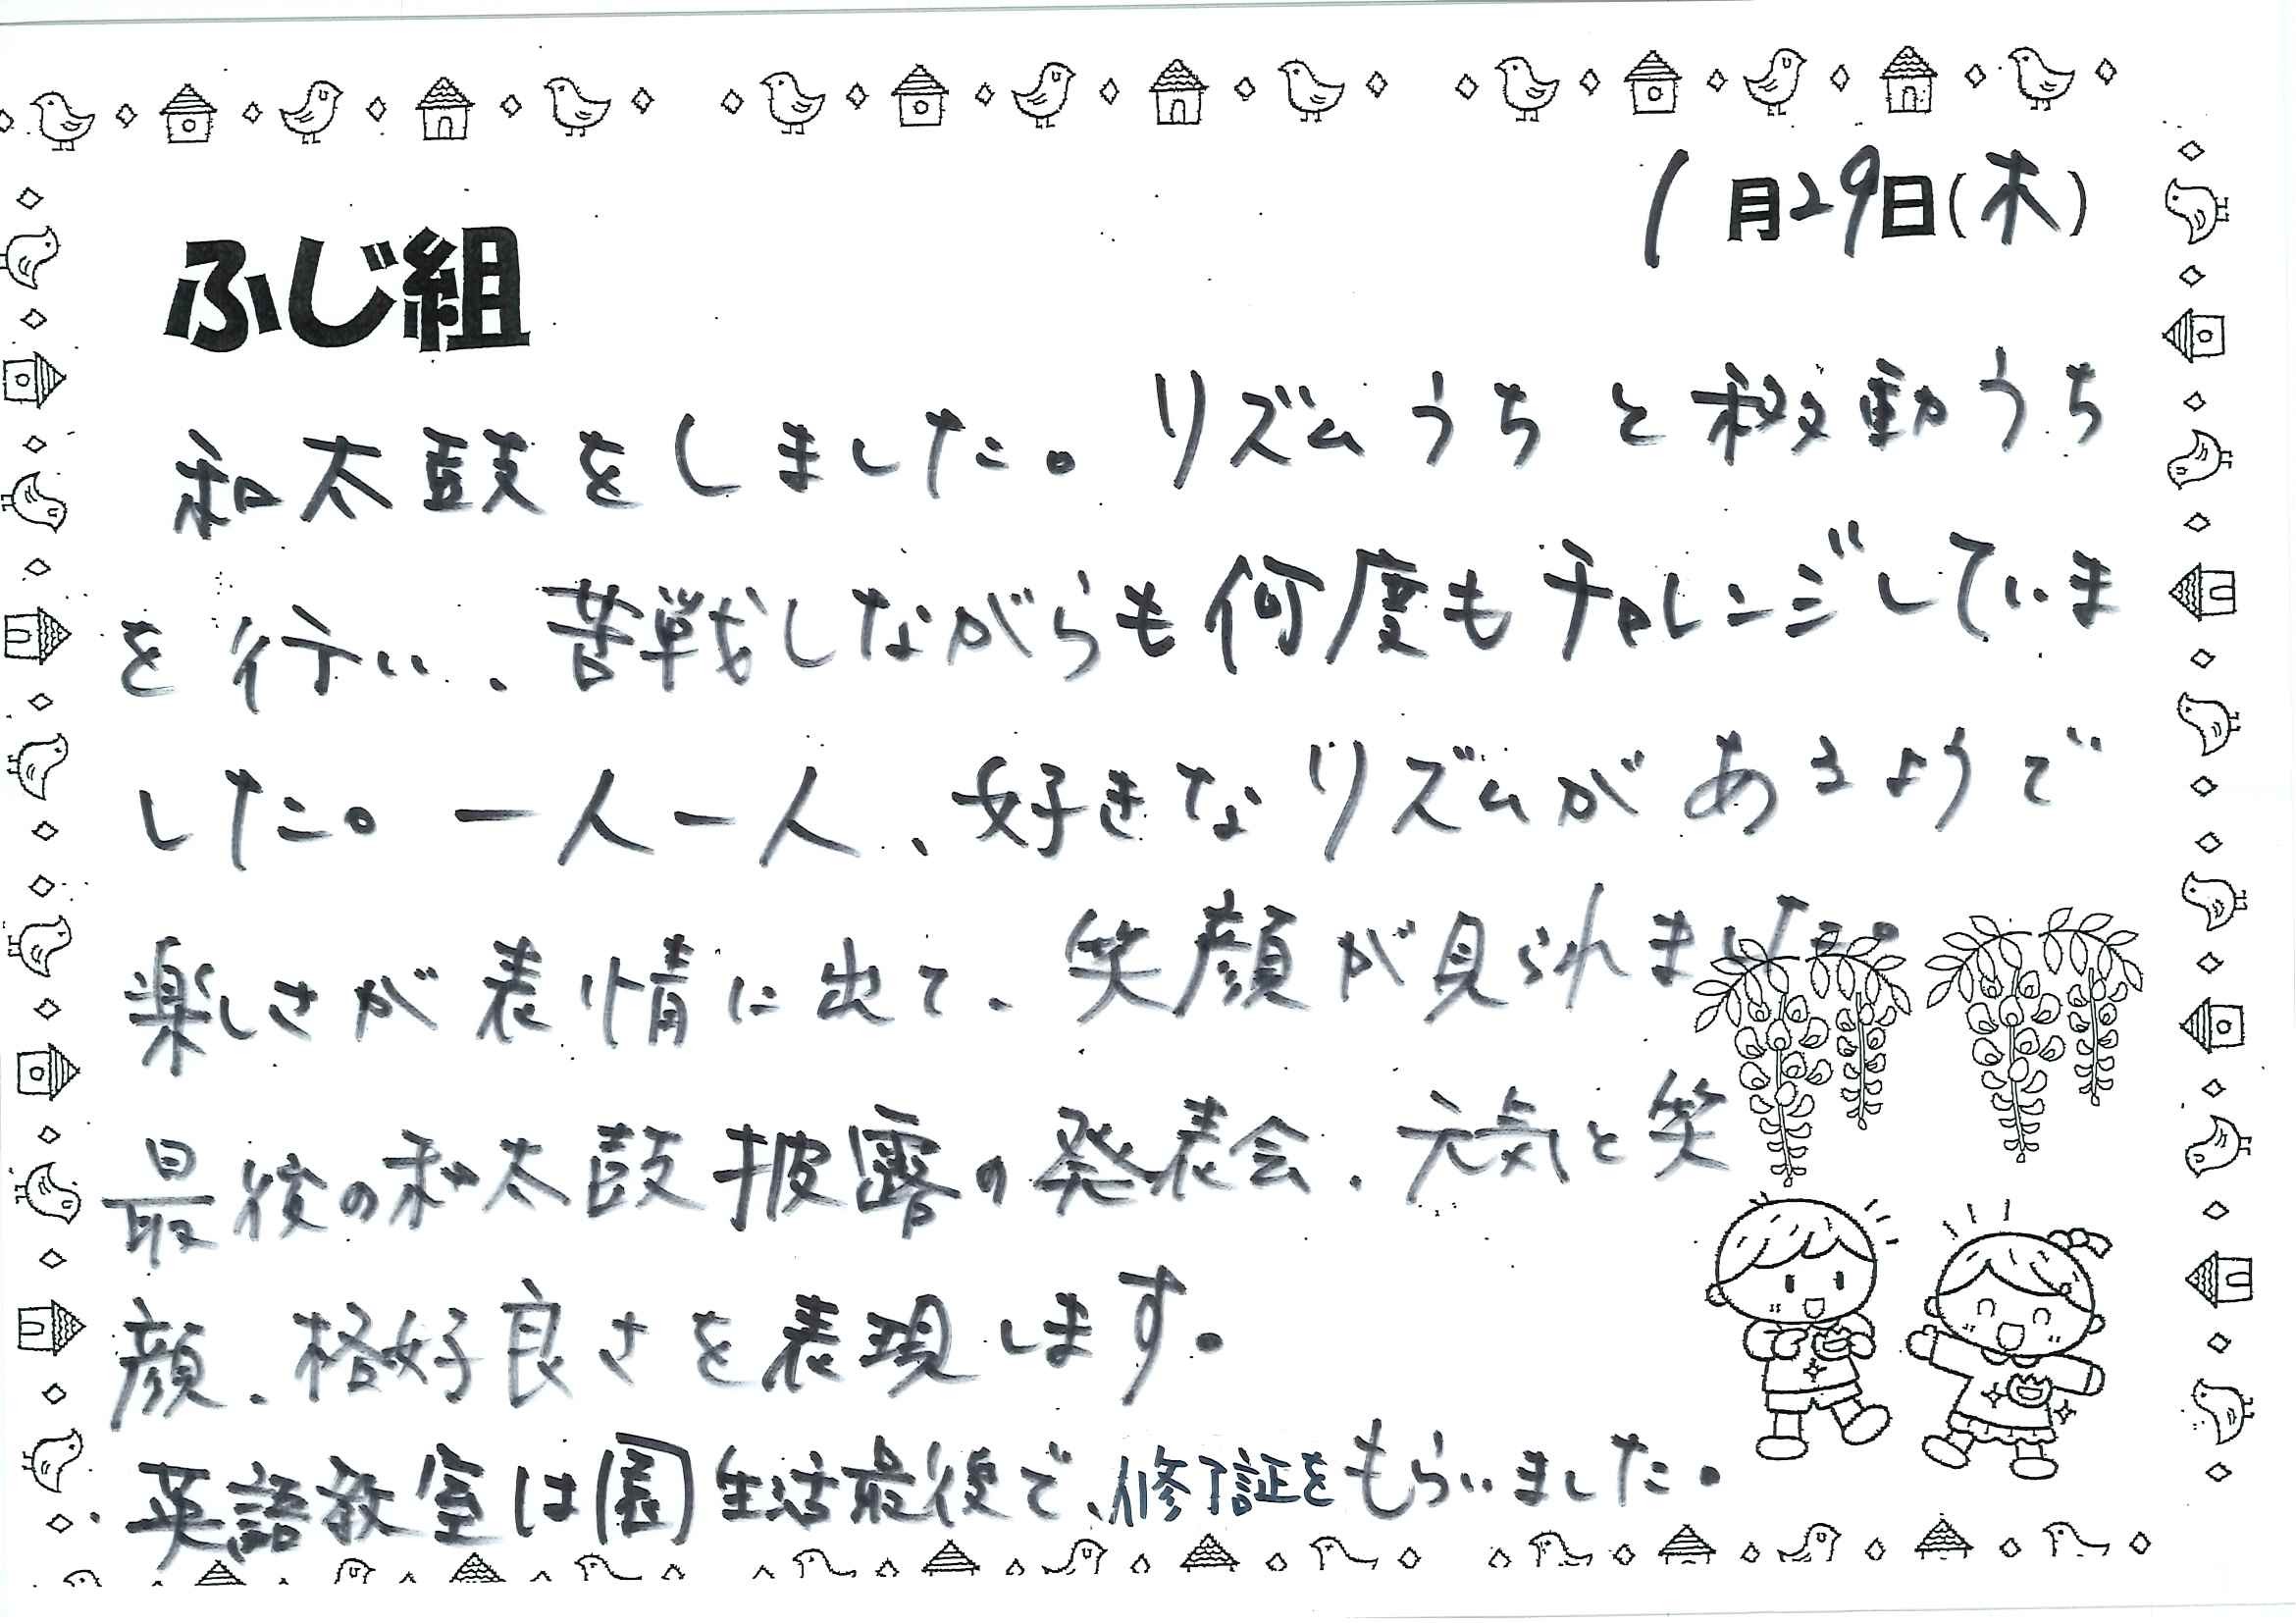 1月29日(木)
ふじ組
和太鼓をしました。リズムうちと移動うち
を行い、苦戦しながらも何度もチャレンジしていま
した。一人一人、好きなリズムがあるようで
楽しさが表情に出て、笑顔が見られました。
最後の和太鼓披露の発表会、元気と笑
顔、格好良さを表現します。
英語教室は園生活最後で、修了証をもらいました。